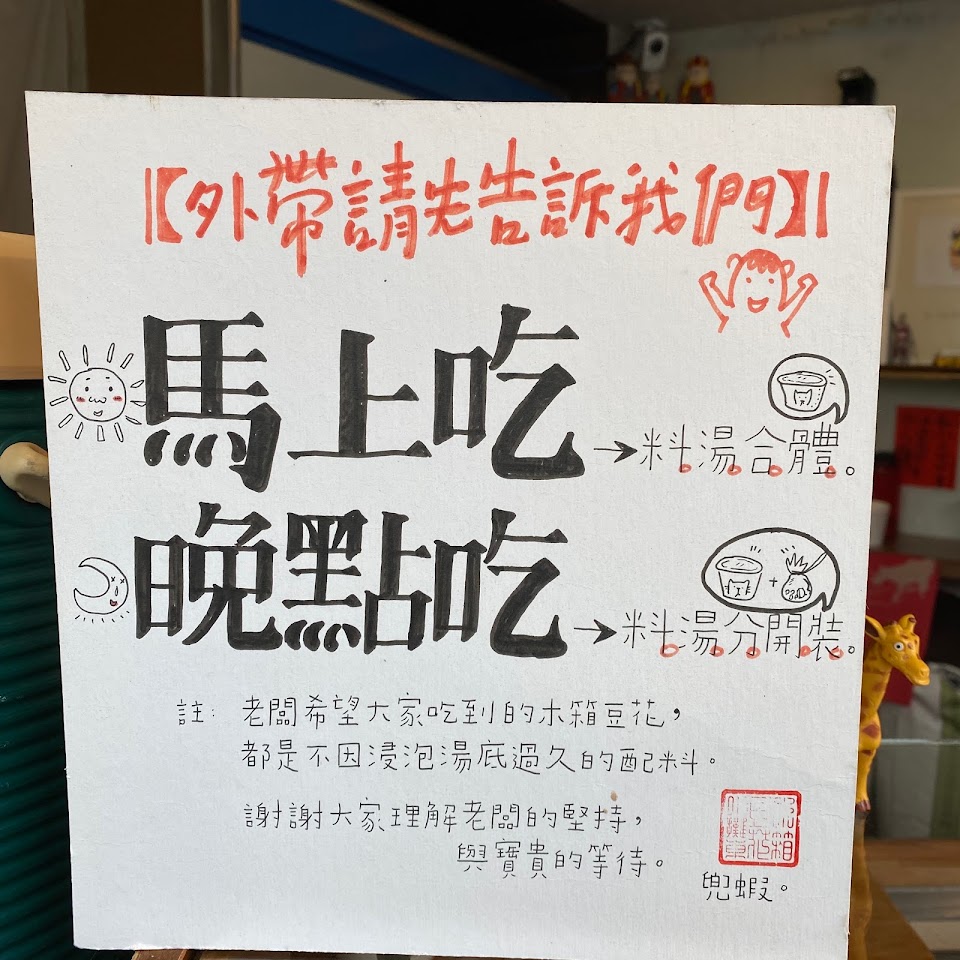 【外帶請先告訴我們】
馬上吃→料湯合體。
晚點吃→料湯分開裝。
註: 老闆希望大家吃到的木箱豆花，
都是不因浸泡湯底過久的配料。
謝謝大家理解老闆的堅持，
與寶貴的等待。
兜蝦。